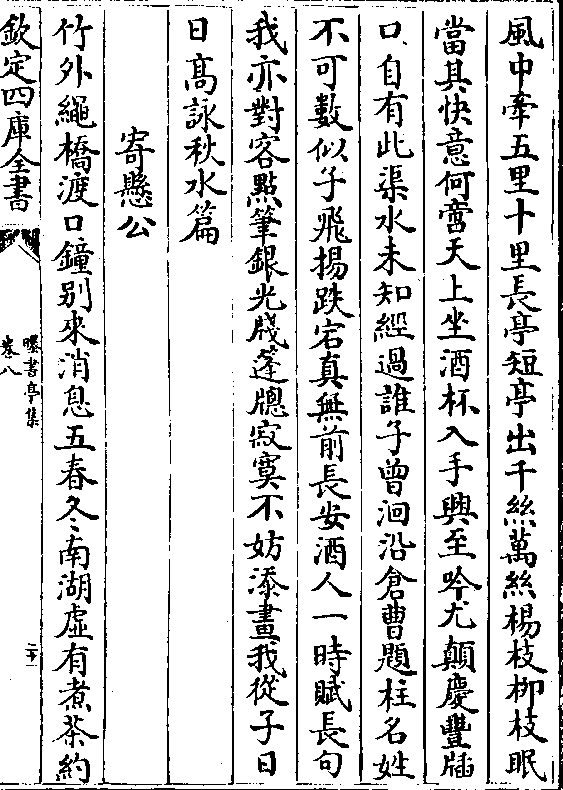 風中牽五里十里長亭短亭出千絲萬絲楊枝柳枝眠
當其快意何啻天上坐酒杯入手興至吟尤顛慶豐牐
口自有此渠水未知經過誰子曾洄沿倉曹題柱名姓
不可數似子飛揚跌宕真無前長安酒人一時賦長句
我亦對客點筆銀光牋蓬牕寂寞不妨添畫我從子日
日髙詠秋水篇
寄懸公
竹外繩橋渡口鐘别來消息五春冬南湖虚有煮茶約
欽定四庫全書
曝書亭集
卷八
二十一